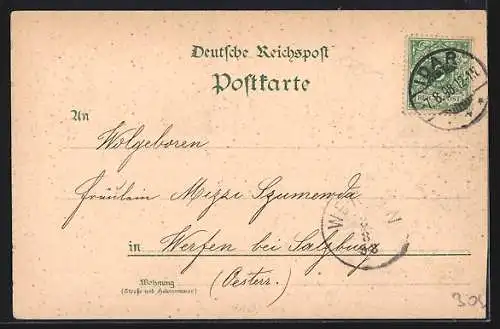 Deutsche Reichspost
Postkarte
IDAR
7.8.98.12-1N
An
Wolgeboren
Fräulein Mizzi Szumewda
W N
in Werfen bei Salzburg
(Oesterr.)
Wohnung
(Straße und Hausnummer)